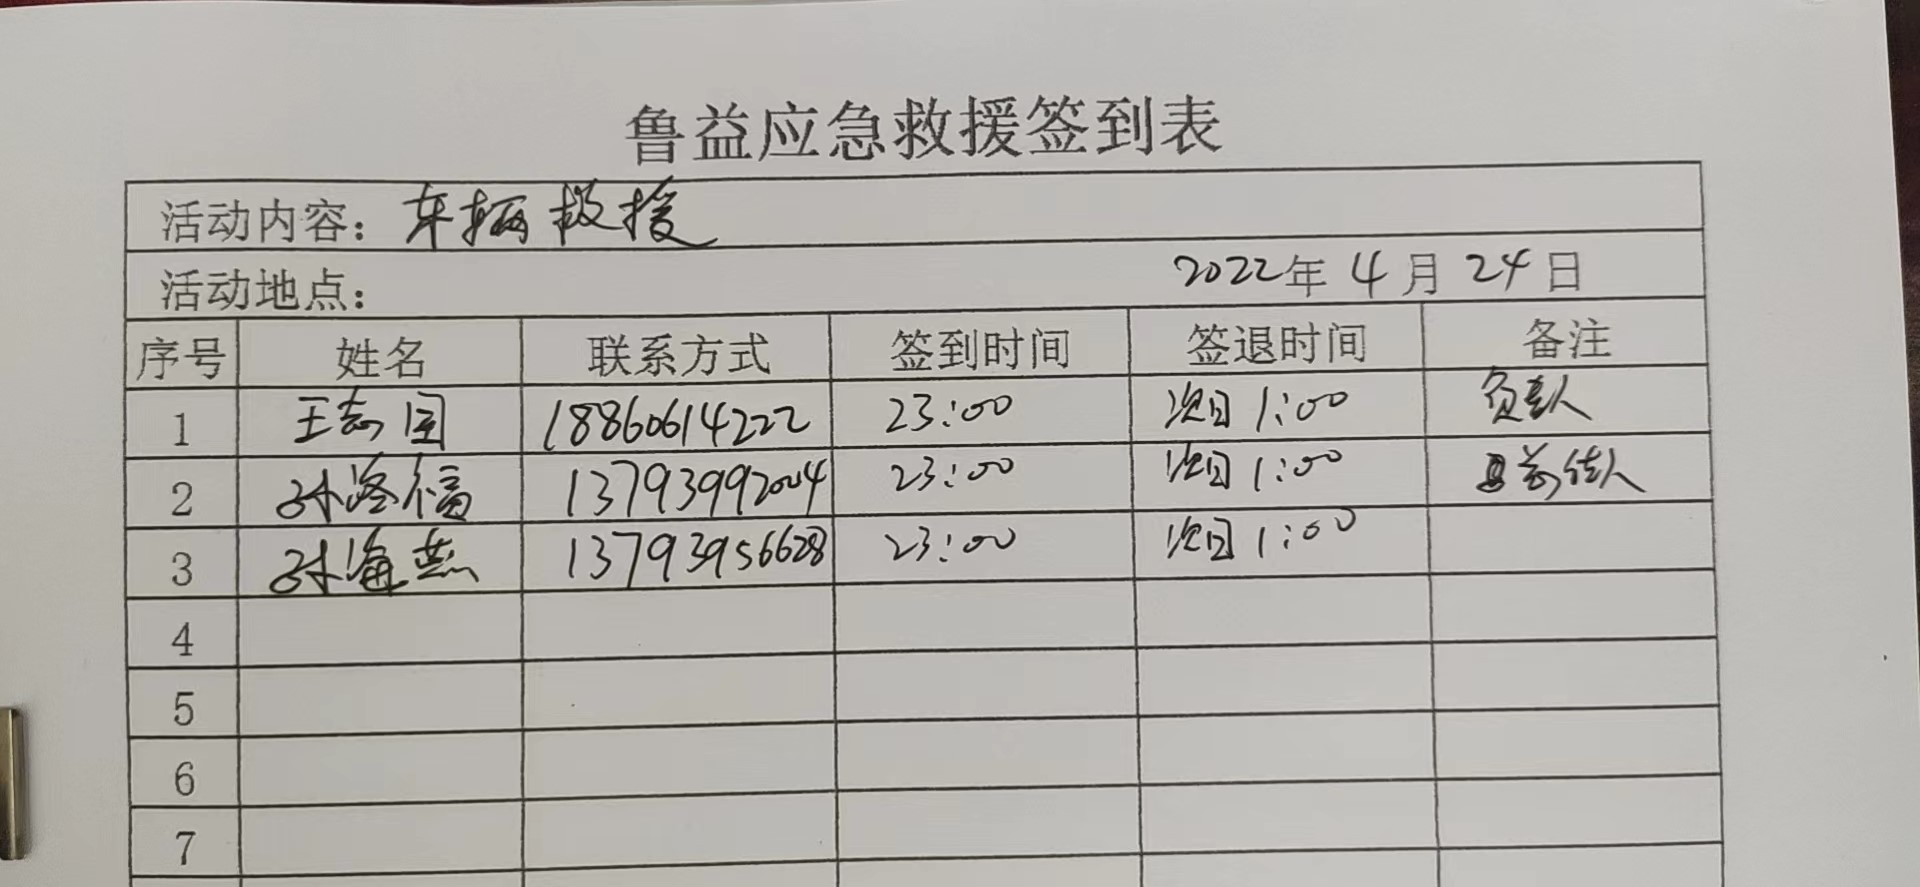 鲁益应急救援签到表
活动内容：车辆救援
活动地点： 2022年 4月 24日
序号 姓名 联系方式 签到时间 签退时间 备注
1 王志国 18860614222 23:00 次日 1:00 负责人
2 孙洛福 13793992004 23:00 次日 1:00
3 孙海燕 13793956628 23:00 次日 1:00
4
5
6
7